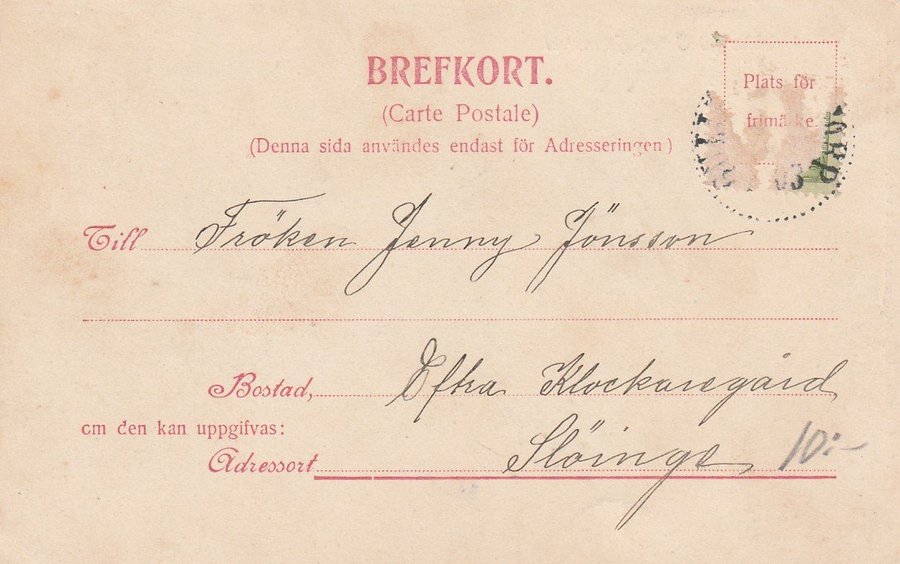 BREFKORT.
(Carte Postale)
(Denna sida användes endast för Adresseringen)
Plats för
frimärke
03
Till Fröken Jenny Jönsson
Bostad, Eftra Klockaregård
om den kan uppgifvas:
Adressort Slöinge 10:-